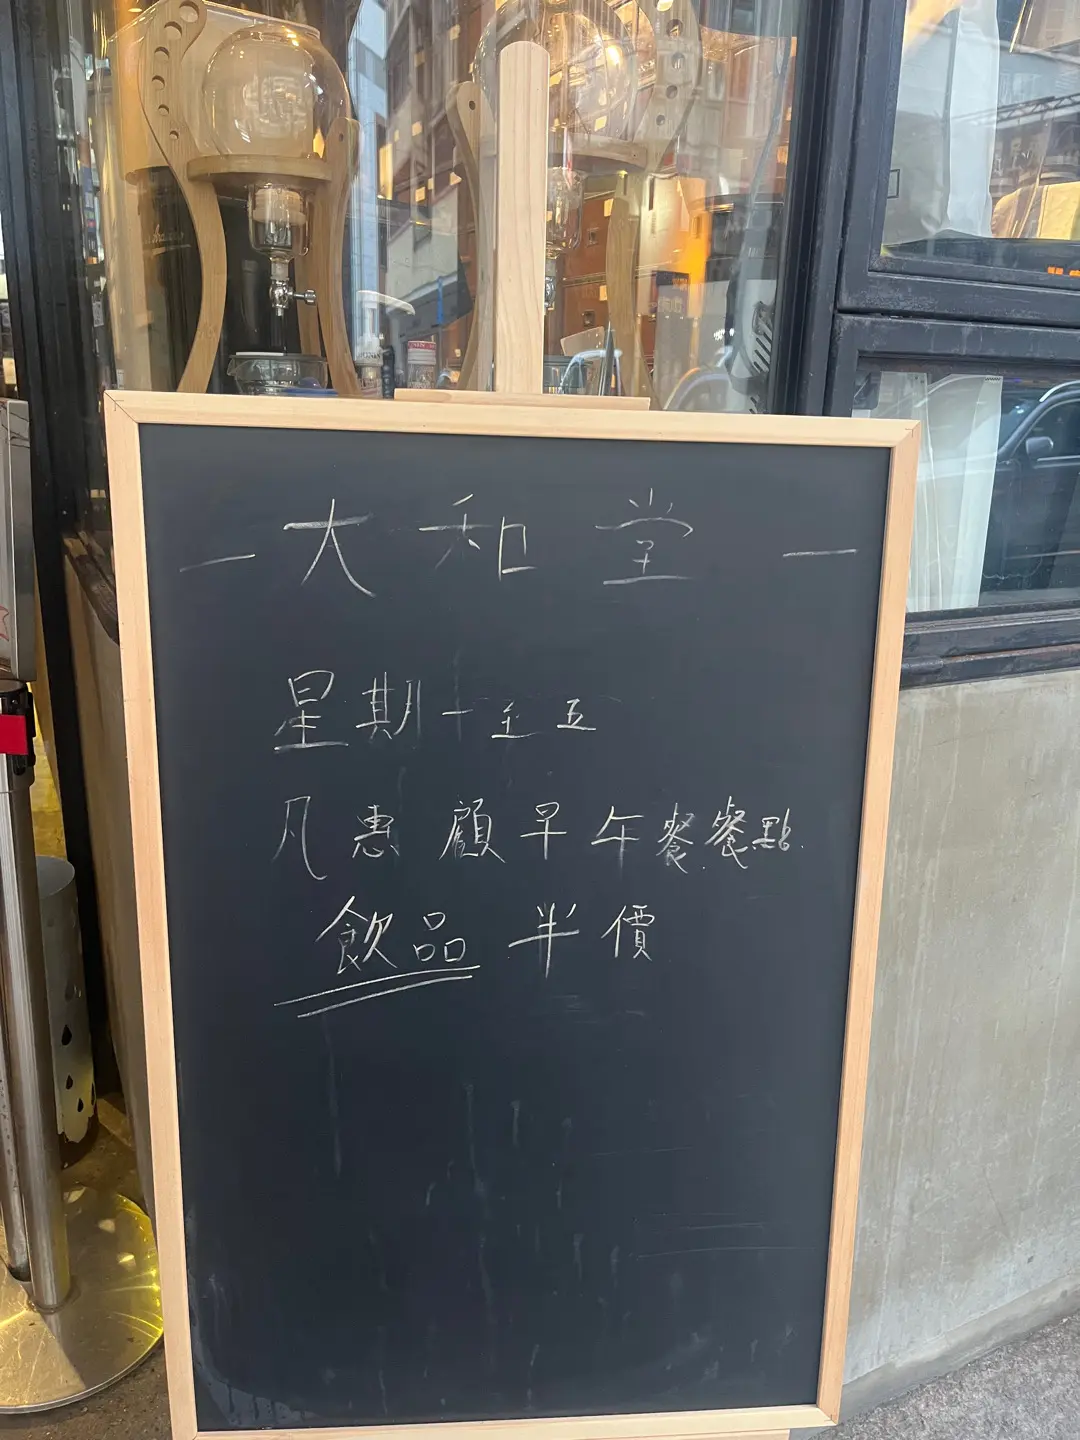 一 大和堂 一
星期一至五
凡惠顧早午餐餐點
飲品半價